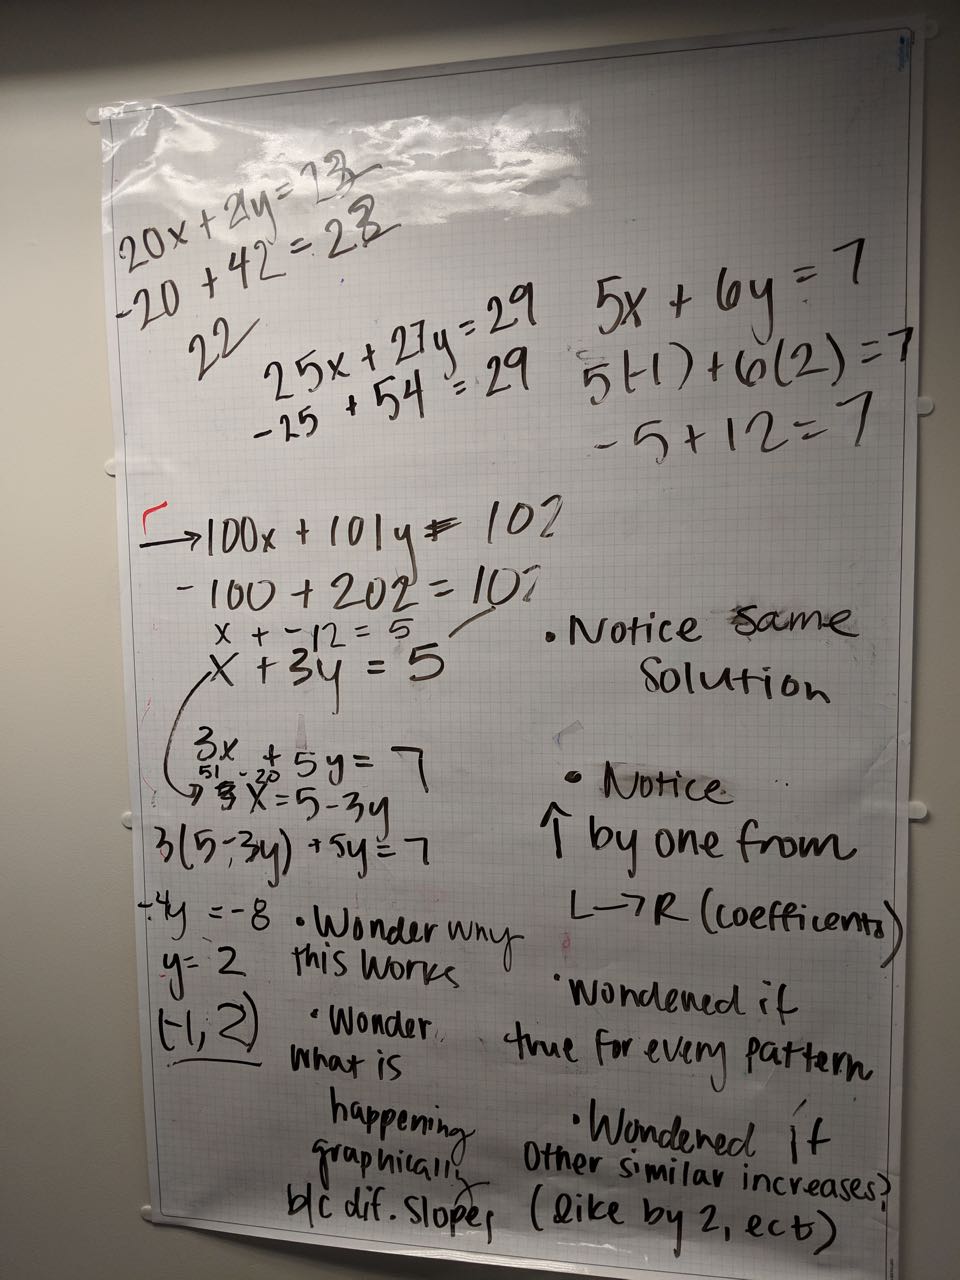 20x + 21y = 22
-20 + 42 = 22
22
25x + 27y = 29
-25 + 54 = 29
5x + 6y = 7
5(-1) + 6(2) = 7
-5 + 12 = 7
→ 100x + 101y = 102
-100 + 202 = 102
x + -12 = 5
x + 3y = 5
3x + 5y = 7
51 - 20
x = 5 - 3y
3(5-3y) + 5y = 7
-4y = -8
y = 2
(-1, 2)
• Wonder why
this works
• Wonder
what is
happening
graphically
b/c dif. slopes
• Notice same
solution
• Notice
↑ by one from
L→R (coefficents)
• Wondened if
true for every pattern
• Wondened if
other similar increases?
(like by 2, ect)